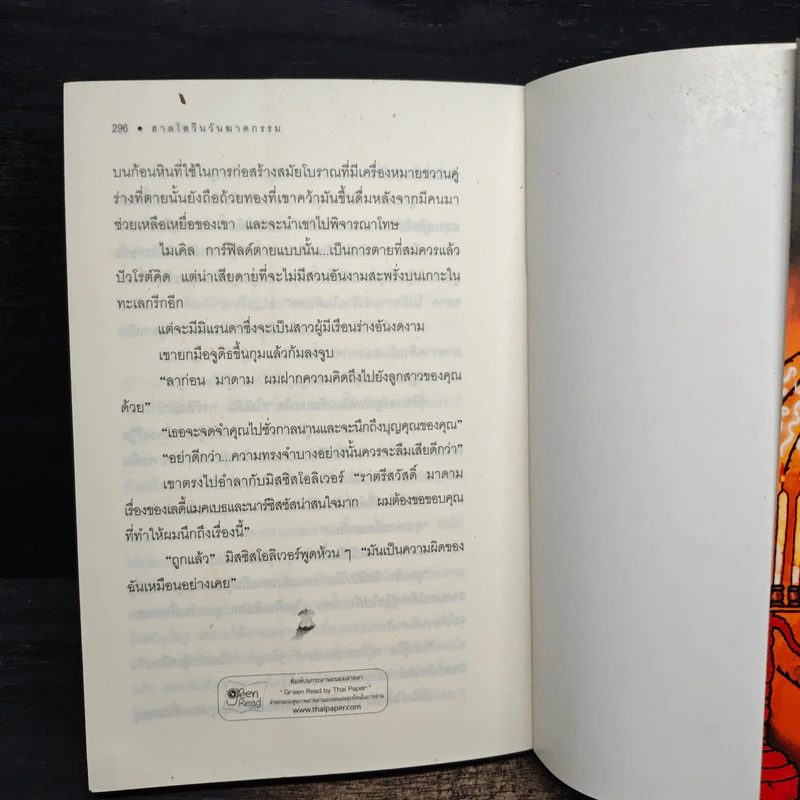 296 • ฮาลโลวีนวันฆาตกรรม
บนก้อนหินที่ใช้ในการก่อสร้างสมัยโบราณที่มีเครื่องหมายขวานคู่
ร่างที่ตายนั้นยังถือถ้วยทองที่เขาคว้ามันขึ้นดื่มหลังจากมีคนมา
ช่วยเหลือเหยื่อของเขา และจะนำเขาไปพิจารณาโทษ
ไมเคิล การ์ฟิลด์ตายแบบนั้น...เป็นการตายที่สมควรแล้ว
ปัวโรต์คิด แต่น่าเสียดายที่จะไม่มีสวนอันงามสะพรั่งบนเกาะใน
ทะเลกรีกอีก
แต่จะมีมิแรนดาซึ่งจะเป็นสาวผู้มีเรือนร่างอันงดงาม
เขายกมือจูดิธขึ้นกุมแล้วก้มลงจูบ
“ลาก่อน มาดาม ผมฝากความคิดถึงไปยังลูกสาวของคุณ
ด้วย”
“เธอจะจดจำคุณไปชั่วกาลนานและจะนึกถึงบุญคุณของคุณ”
“อย่าดีกว่า...ความทรงจำบางอย่างนั้นควรจะลืมเสียดีกว่า”
เขาตรงไปอำลากับมิสซิสโอลิเวอร์ “ราตรีสวัสดิ์ มาดาม
เรื่องของเลดี้แมคเบธและนาร์ซิสซัสน่าสนใจมาก ผมต้องขอขอบคุณ
ที่ทำให้ผมนึกถึงเรื่องนี้”
“ถูกแล้ว” มิสซิสโอลิเวอร์พูดห้วน ๆ “มันเป็นความผิดของ
ฉันเหมือนอย่างเคย”
Green Read
พิมพ์บนกระดาษถนอมสายตา
“ Green Read by Thai Paper ”
www.thaipaper.com